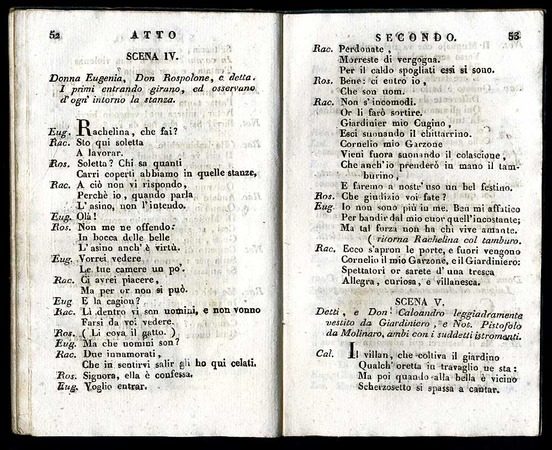 52
ATTO
SCENA IV.
Donna Eugenia, Don Rospolone, e detta.
I primi entrando girano, ed osservano
d'ogn' intorno la stanza.
Eug. Rachelina, che fai?
Rac. Sto qui soletta
A lavorar.
Ros. Soletta? Chi sa quanti
Carri coperti abbiamo in quelle stanze,
Rac. A ciò non vi rispondo,
Perchè io, quando parla
L'asino, non l'intendo.
Eug. Olà!
Ros. Non me ne offendo:
In bocca delle belle
L'asino anch' è virtù.
Eug. Vorrei vedere
Le tue camere un po'.
Rac. Ci avrei piacere,
Ma per or non si può.
Eug E la cagion?
Rac. Lì dentro vi son uomini, e non vonno
Farsi da voi vedere.
Ros. ( Li cova il gatto. )
Eug. Ma che uomini son?
Rac. Due innamorati,
Che in sentirvi salir gli ho qui celati.
Ros. Signora, ella è confessa.
Eug. Voglio entrar.
SECONDO.
53
Rac. Perdonate,
Morreste di vergogna.
Per il caldo spogliati essi si sono.
Ros. Bene: ci entro io,
Che son uom.
Rac. Non s'incomodi.
Or li farò sortire.
Giardinier mio Cugino,
Esci suonando il chittarrino.
Cornelio mio Garzone
Vieni fuora suonando il colascione,
Che anch'io prenderò in mano il tam-
burino,
E faremo a nostr'uso un bel festino.
Ros. Che giudizio voi fate?
Eug Io non sono più in me. Ben mi affatico
Per bandir dal mio cuor quell'incostante;
Ma tal forza non ha chi vive amante.
( ritorna Rachelina col tamburo.
Rac. Ecco s'apron le porte, e fuori vengono
Cornelio il mio Garzone, e il Giardiniero:
Spettatori or sarete d'una tresca
Allegra, curiosa, e villanesca.
SCENA V.
Detti, e Don Caloandro leggiadramente
vestito da Giardiniero, e Not. Pistofolo
da Molinaro, ambi con i suddetti istromenti.
Cal. Il villan, che coltiva il giardino
Qualch' oretta in travaglio ne sta:
Ma poi quando alla bella è vicino
Scherzosetto si spassa a cantar.